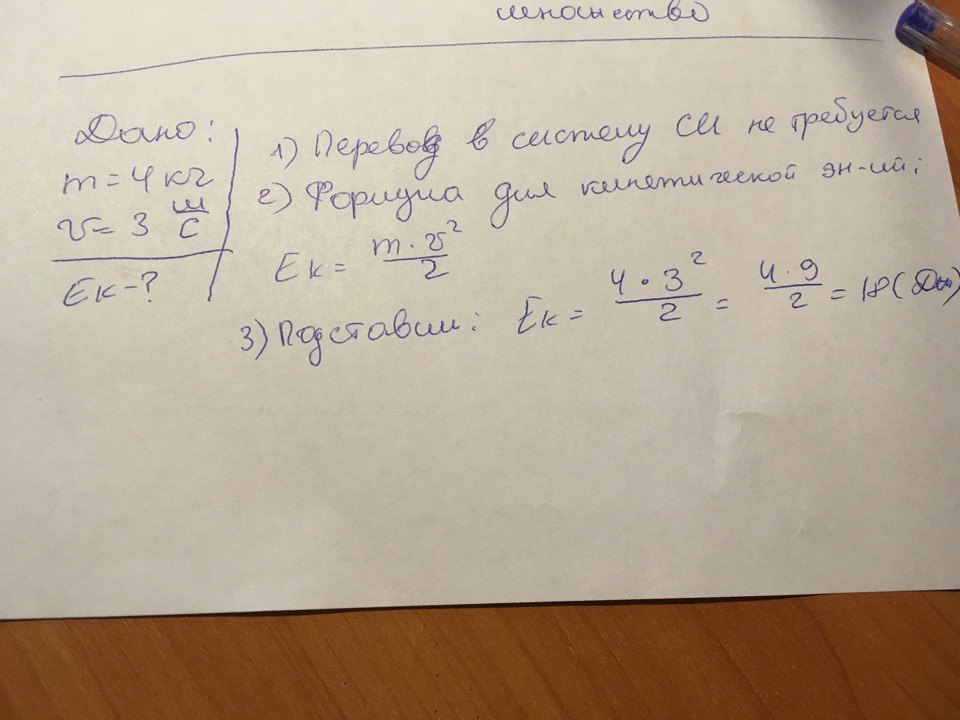 множество
Дано:
m = 4 кг
v = 3 м/с
Ek - ?
1) Перевод в систему СИ не требуется
2) Формула для кинетической эн-ии:
Ek = m · v² / 2
3) Подставим: Ek = 4 · 3² / 2 = 4 · 9 / 2 = 18 (Дж)